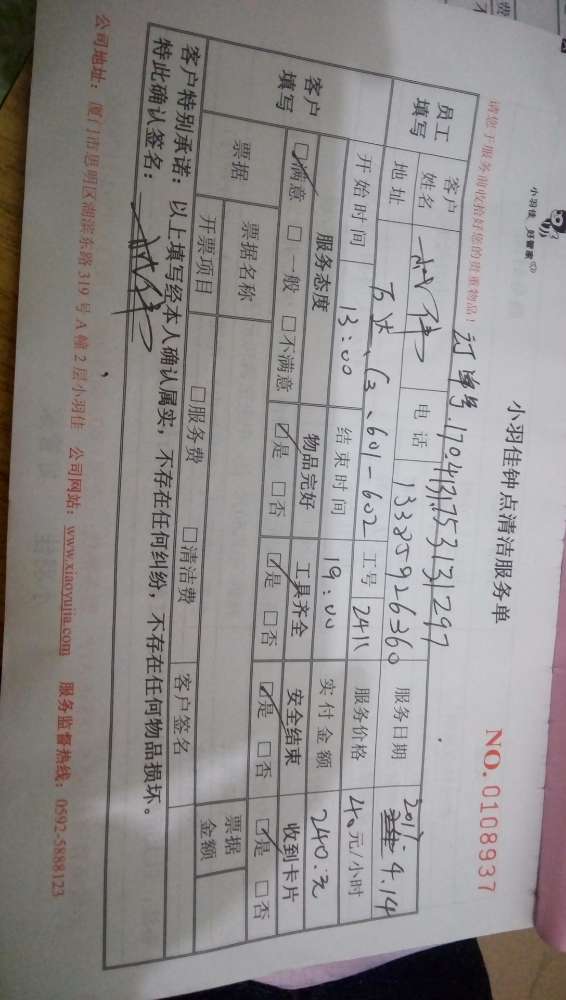 小羽佳 好管家
小羽佳钟点清洁服务单
NO.0108937
请您于服务前收拾好您的贵重物品!
订单号.170413175313129
员工填写 客户姓名 电话 13385926360 服务日期 2017. 4.14
地址 万达、C3、601-602 工号 2411 服务价格 40元/小时
客户填写 开始时间 13:00 结束时间 19:00 实付金额 240.元
服务态度 物品完好 工具齐全 安全结束 收到卡片
☑满意 □一般 □不满意 ☑是 □否 ☑是 □否 ☑是 □否 ☑是 □否
票据 票据名称 客户签名 票据金额
开票项目 □服务费 □清洁费
客户特别承诺:以上填写经本人确认属实,不存在任何纠纷,不存在任何物品损坏。
特此确认签名:
公司地址:厦门市思明区湖滨东路319号A幢2层小羽佳 公司网站:www.xiaoyujia.com 服务监督热线:0592-5888123